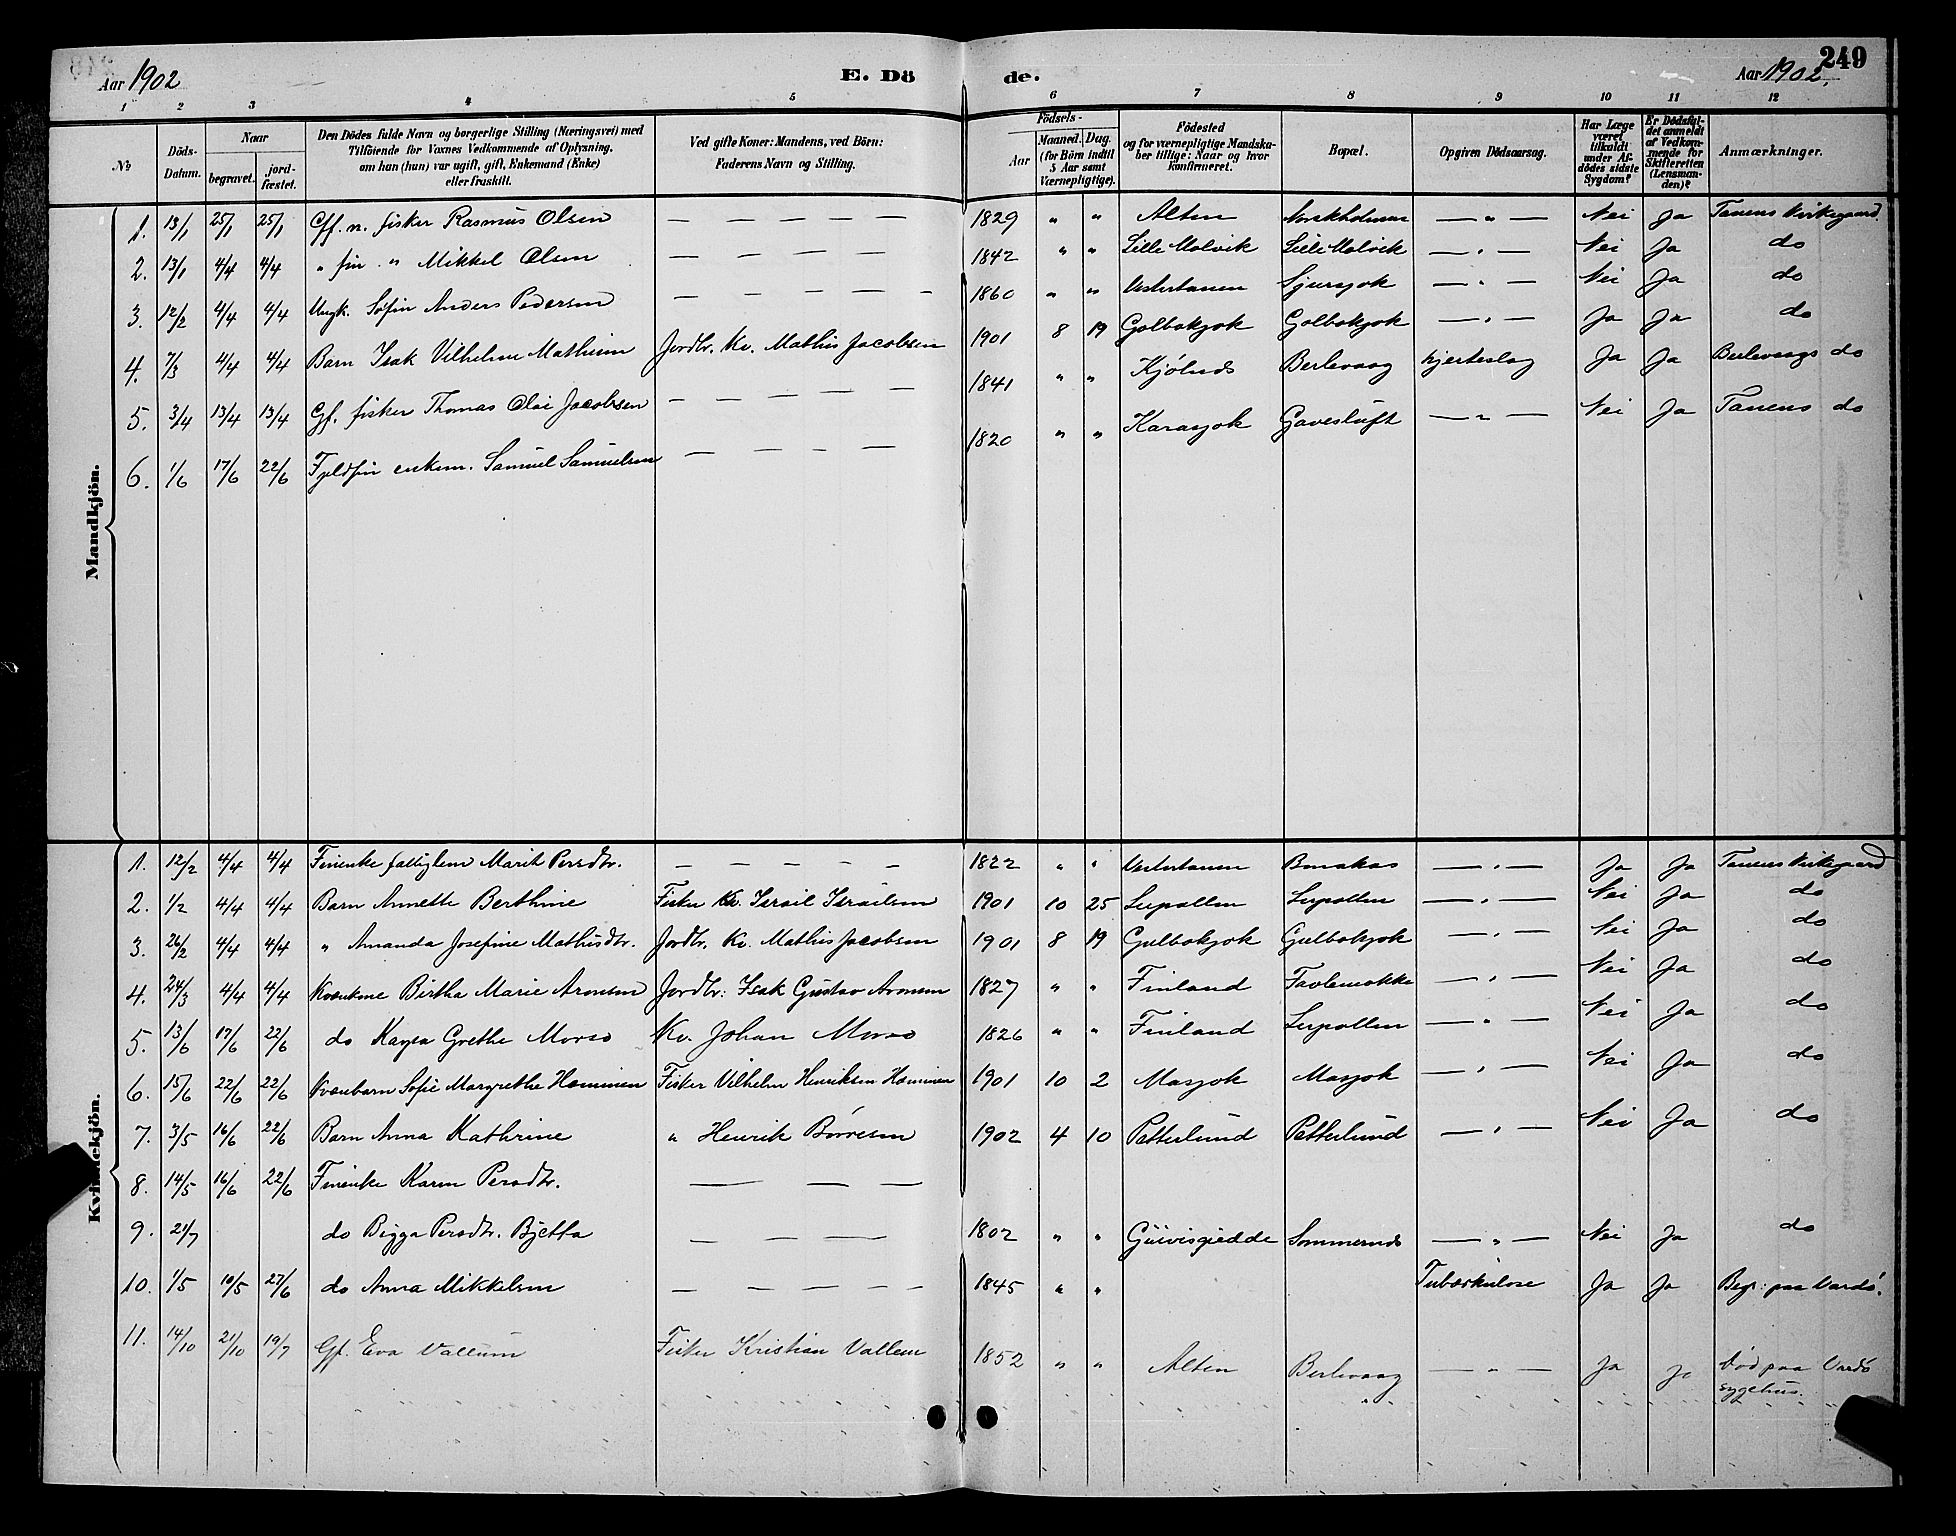 249
Aar 1902 E. Dö de. Aar 1902
1 2 3 4 5 6 7 8 9 10 11 12
No
Döds-Datum.
Naar
begravet. jord-fæstet.
Den Dödes fulde Navn og borgerlige Stilling (Næringsvei) med
Tilföiende for Voxnes Vedkommende af Oplysning,
om han (hun) var ugift, gift, Enkemand (Enke)
eller fraskilt.
Ved gifte Koner: Mandens, ved Börn:
Faderens Navn og Stilling.
Födsels-
Aar Maaned. Dag.
(for Börn indtil
5 Aar samt
Værnepligtige).
Födested
og for værnepligtige Mandska-
ber tillige: Naar og hvor
konfirmeret.
Bopæl.
Opgiven Dödsaarsag.
Har Læge
været
tilkaldt
under Af-
dödes sidste
Sygdom?
Er Dödsfal-
det anmeldt
af Vedkom-
mende for
Skifteretten
(Lensman-
den)?
Anmærkninger.
Mandkjön.
1. 13/1 25/1 25/1 Gf. n. fisker Rasmus Olsen — — — — — 1829 " " Alten — " — Nei Ja Tanens Kirkegaard
2. 13/1 4/4 4/4 " fin " Mikkel Olsen — — — — — 1842 " " Lille Molvik Lille Molvik — " — Nei Ja do
3. 12/2 4/4 4/4 Ungk. Søfin Anders Pedersen — — — — — 1860 " " Vestertanen — " — Nei Ja do
4. 7/3 4/4 4/4 Barn Isak Vilhelm Jordbr. Kv. Mathis Jacobsen 1901 8 19 Golbokjok Golbokjok — " — Ja Ja do
5. 3/4 13/4 13/4 Gf. fisker Thomas Olai Jacobsen — — — — 1841 " " Kjölnes Berlevaag hjerteslag Ja Ja Berlevaags do
6. 1/6 17/6 22/6 Fjeldfin enkem. Samuel Samuelsen — — — — 1820 " " Karasjok Gavesluft — " — Nei Ja Tanens do
Kvindekjön.
1. 12/2 4/4 4/4 Finenke fattiglem Marit Persdtr. — — — — — 1822 " " Vestertanen Bonakas — " — Ja Ja Tanens Kirkegaard
2. 1/2 4/4 4/4 Barn Annette Berthine Fisker Kv. Israil Israilsen 1901 10 25 Leipollen Leipollen — " — Nei Ja do
3. 26/2 4/4 4/4 " Amanda Josefine Mathisdtr. Jordbr. Kv. Mathis Jacobsen 1901 8 19 Gulbokjok Gulbokjok — " — Nei Ja do
4. 24/3 4/4 4/4 Kvænkone Birtha Marie Aronsen Jordbr: Isak Gustav Aronsen 1827 " " Finland — " — Nei Ja do
5. 13/6 17/6 22/6 do Kaysa Grethe Morso Kv. Johan Morso 1826 " " Finland Leipollen — " — Nei Ja do
6. 15/6 22/6 22/6 Kvænbarn Sofie Margrethe Hanninen Fisker Vilhelm Henriksen Hanninen 1901 10 2 Masjok Masjok — " — Nei Ja do
7. 3/5 16/6 22/6 Barn Anna Kathrine " Henrik Börresen 1902 4 10 Petterlund Petterlund — " — Nei Ja do
8. 14/5 16/6 22/6 Finenke Karen Persdtr. — — —
9. 21/7 do Bigga Persdtr. Bjetta — — — 1802 " " Sommernes — " — Nei Ja do
10. 1/5 10/5 27/6 do Anna Mikkelsen — — — — — 1845 " " Tuberkulose Ja Ja Begr: paa Vardö.
11. 14/10 21/10 19/7 Gf. Eva Vallum Fisker Kristian Vallem 1852 " " Alten Berlevaag — " — Ja Ja Död paa Vardö
sygehus.